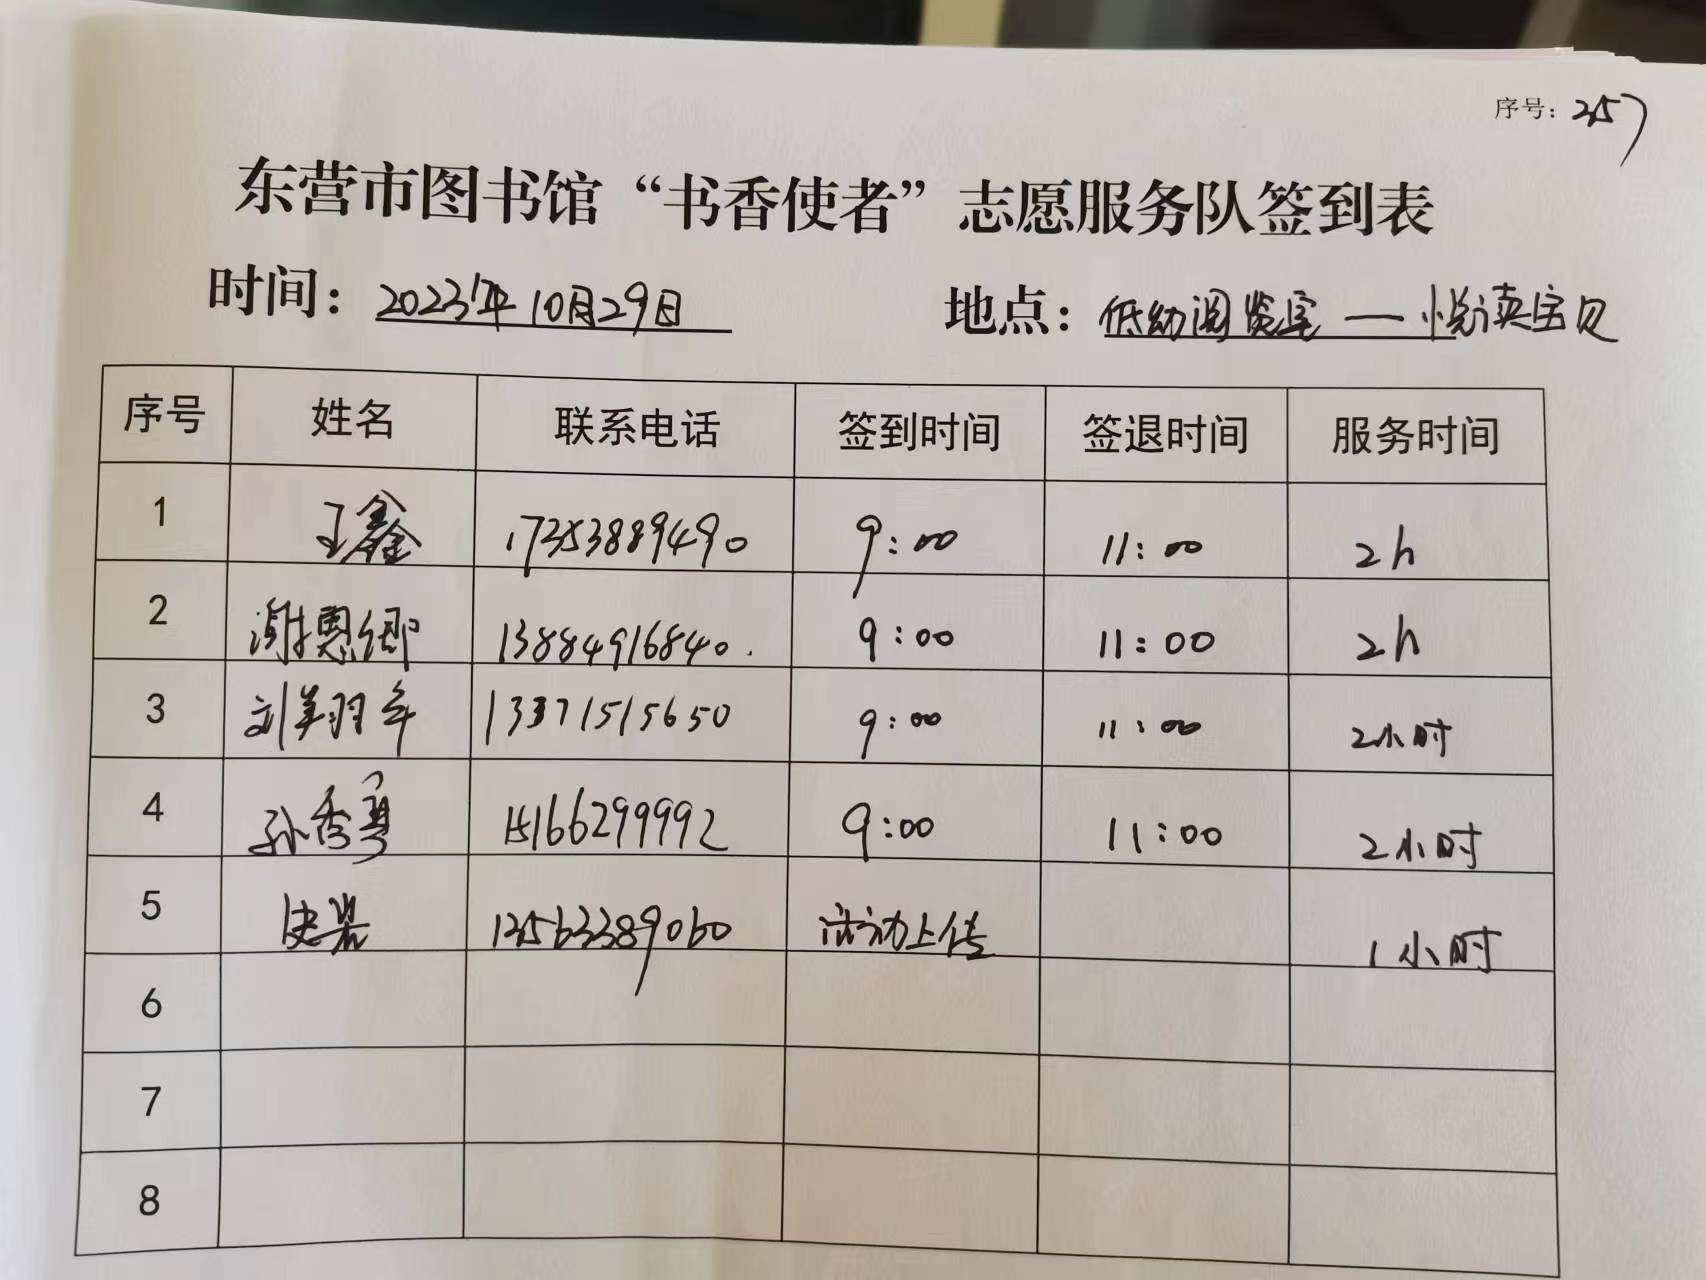 序号：257
东营市图书馆“书香使者”志愿服务队签到表
时间：2023年10月29日 地点：低幼阅览室——悦读宝贝
序号 姓名 联系电话 签到时间 签退时间 服务时间
1 王鑫 17353889490 9:00 11:00 2h
2 谢恩卿 13884916840. 9:00 11:00 2h
3 刘美羽 13371515650 9:00 11:00 2小时
4 孙秀勇 15166299992 9:00 11:00 2小时
5 史岩 13563389060 活动上传 1小时
6
7
8